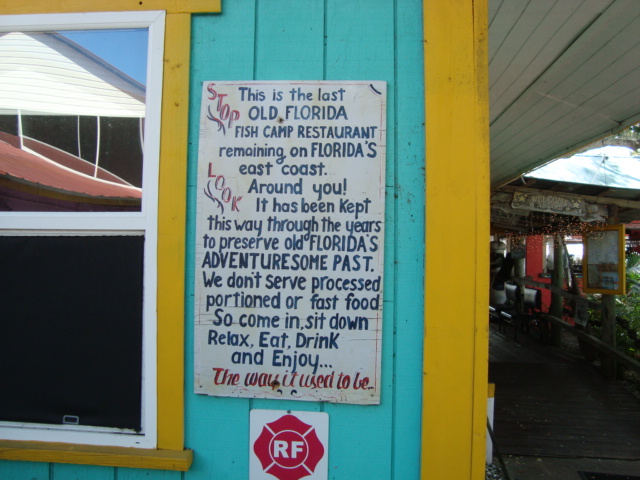 STOP This is the last
OLD FLORIDA
FISH CAMP RESTAURANT
remaining on FLORIDA'S
east coast.
LOOK Around you!
It has been Kept
this way through the years
to preserve old FLORIDA'S
ADVENTURESOME PAST.
We don't serve processed
portioned or fast food
So come in, sit down
Relax, Eat, Drink
and Enjoy...
The way it used to be..
RF